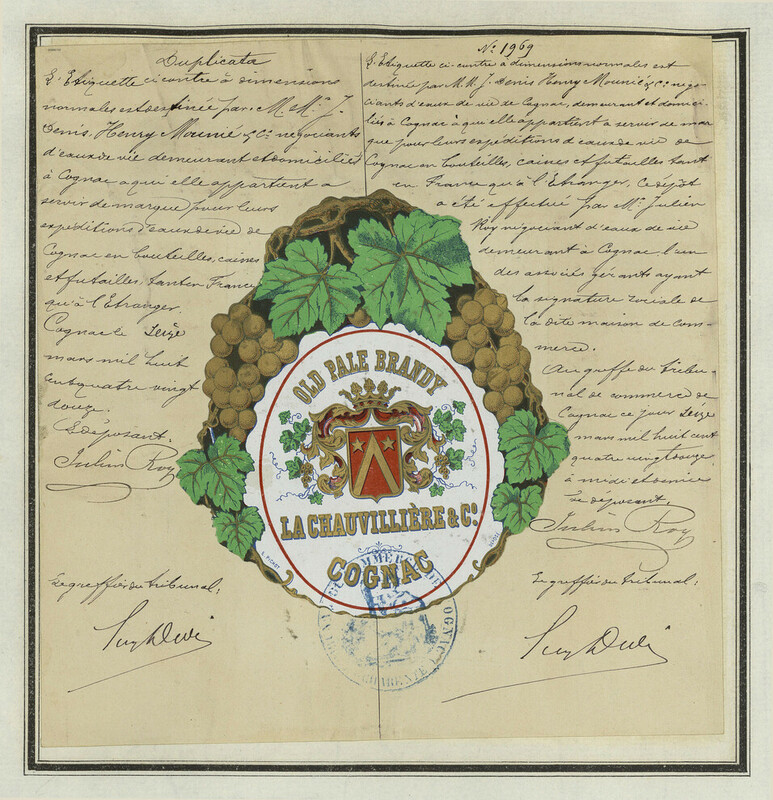 Duplicata
L'Etiquette ci contre à dimensions
normales est destinée par M.Mrs J.
Denis, Henry Mounié & Cie négociants
d'eaux de vie demeurant et domiciliés
à Cognac a qui elle appartient a
servir de marque pour leurs
expéditions d'eaux de vie de
Cognac en bouteilles, caisses
et futailles, tant en France
qu'à l'Etranger.
Cognac le seize
mars mil huit
cent quatre vingt
douze.
Le déposant.
Julius Roy
Le greffier du tribunal:
No 1969
L'Etiquette ci-contre à dimensions normales est
destinée par M.M. J. Denis Henry Mounié & Cie négo-
ciants d'eaux de vie de Cognac, demeurant et domici-
liés à Cognac à qui elle appartient a servir de mar
que pour leurs expéditions d'eaux de vie de
Cognac en bouteilles, caisses et futailles tant
en France qu'à l'Etranger. Ce dépôt
a été effectué par Mr Julien
Roy négociant d'eaux de vie
demeurant à Cognac, l'un
des associés gérants ayant
la signature sociale de
la dite maison de com-
merce.
Au greffe du tribu-
nal de commerce de
Cognac ce jour seize
mars mil huit cent
quatre vingt douze
à midi et dernier
Le déposant
Julius Roy
Le greffier du tribunal:
OLD PALE BRANDY
LA CHAUVILLIÈRE & Co.
COGNAC